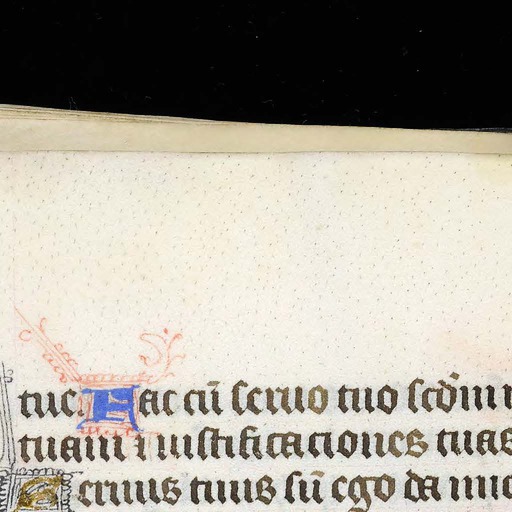 tue. Fac cū seruo tuo scdm m
tuam ⁊ iustificaciones tuas
Seruus tuus sū ego da mic